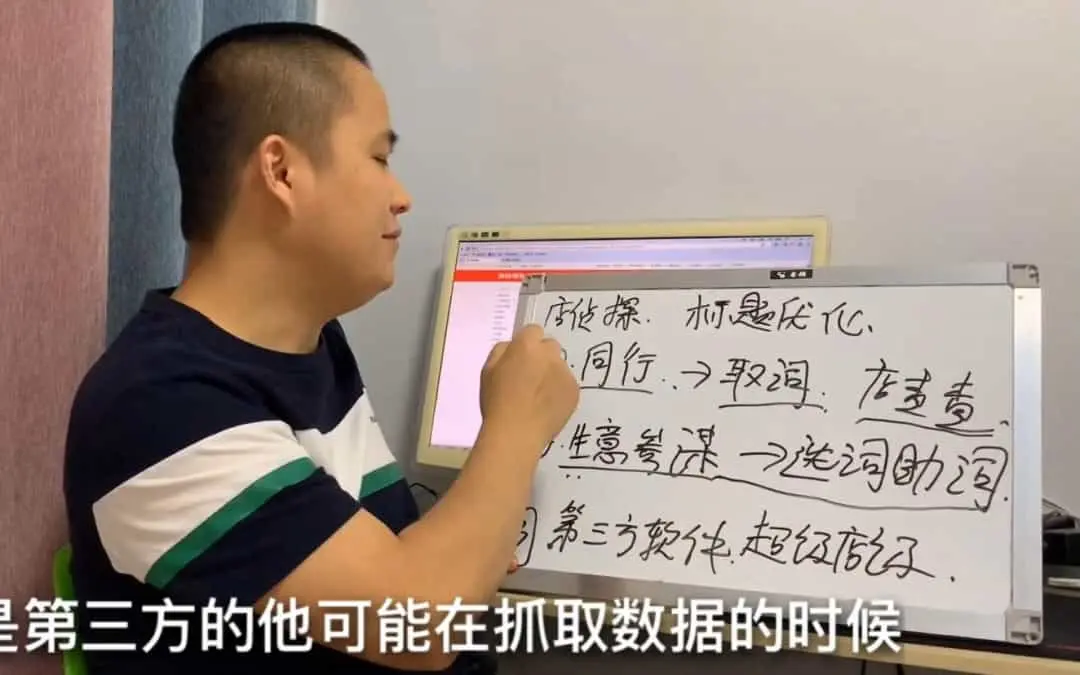 店侦探. 标题优化.
.同行.→取词. 店查查.
.生意参谋→选词助词.
第三方软件.超级店
是第三方的他可能在抓取数据的时候